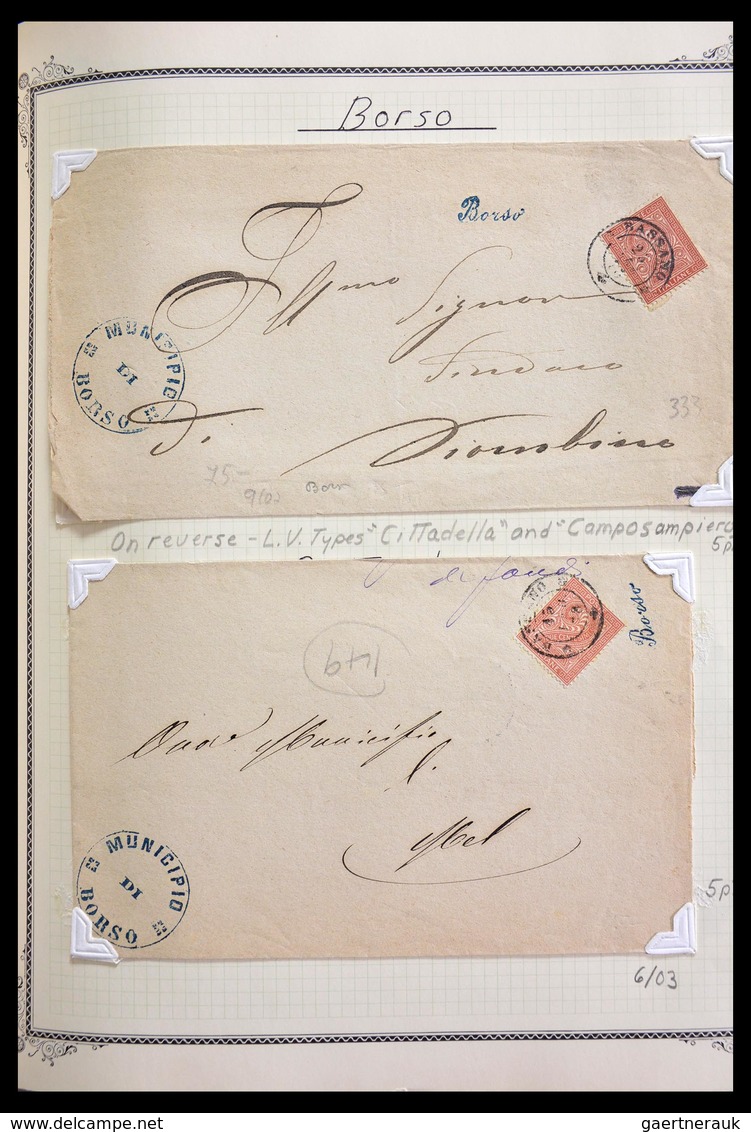 Borso
Borso
BASSANO
Ill.mo Signor
Sindaco
MUNICIPIO
DI
BORSO
di Piombino
333
75-
9(0)
Borso
On reverse - L.V. Types "Cittadella" and "Camposampiero
5p
di fondi
Borso
149
Onor. Municipio
Mel
MUNICIPIO
DI
BORSO
5p
6/03
www.delcampe.net
gaertnerauk